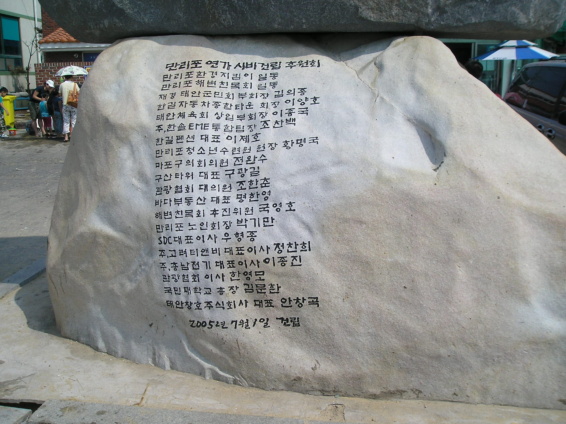 만리포 연가 시비건립 후원회
만리포환경지킴이일동
만리포 해변친목회 일동
재경 태안군민회부회장 김의종
한길자동차종합타운 회장 이양호
태안체육회 상임부회장 이종국
주.한솔EME통합팀장 조산백
한길펜션 대표 이제호
만리포청소년수련원 원장 황명국
마포구의회의원 전완수
구산타워 대표 구광길
관광협회 대의원 조한춘
바다부동산 대표 명한영
해변친목회 추진위원 국영호
만리포 노인회장 박기만
SDC대표이사 우형종
주.고려티앤비 대표이사 정찬희
주.충남전기 대표이사 이종진
관광협회 이사 한영모
국민대학교 총장 김문환
태안창호주식회사 대표 안창국
2005년 7월 1일 건립